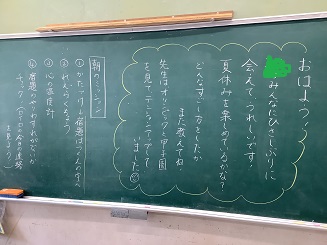 おはよう。
みんなにひさしぶりに
会えて、うれしいです!
夏休みを楽めているかな?
どんなすごし方をしたか
また教えてね。
先生はオリンピックと甲子園
を見て、テンションアップして
いました
朝のミッション
①かだいプリント、宿題は
②れんらくちょう
③心の温度計
④宿題のやりわすれがないか
チェック